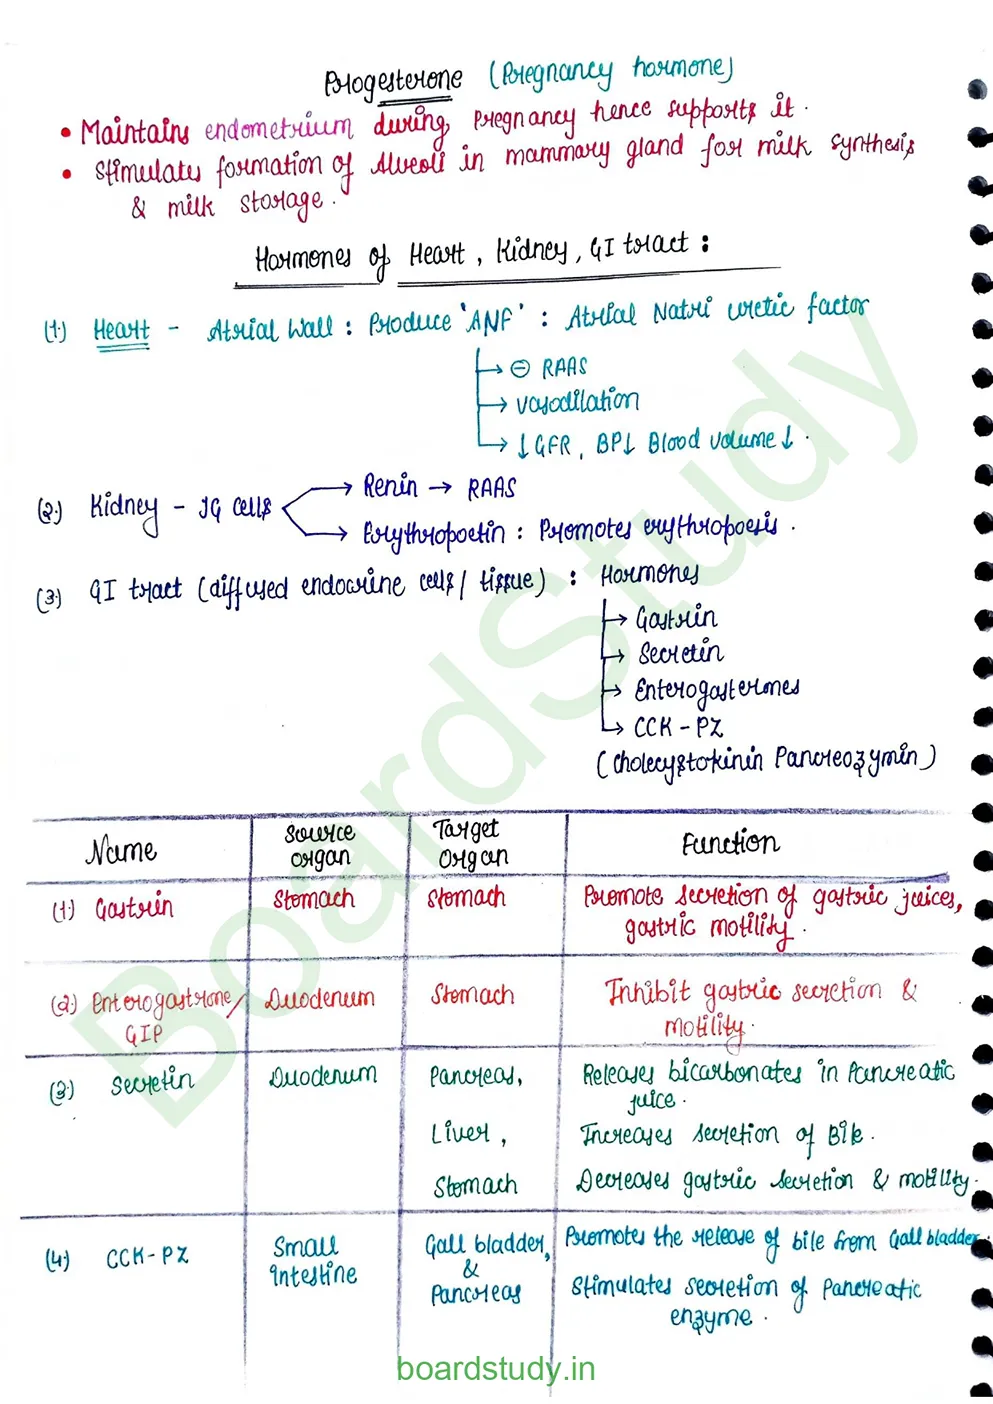 Progesterone (Pregnancy hormone)
• Maintains endometrium during pregnancy hence supports it.
• Stimulates formation of Alveoli in mammary gland for milk synthesis
& milk storage.
Hormones of Heart, Kidney, GI tract:
(1.) Heart - Atrial Wall : Produce 'ANF' : Atrial Natri uretic factor
→ ⊖ RAAS
→ vasodilation
→ ↓GFR, BP↓ Blood volume↓.
(2.) Kidney - JG cells → Renin → RAAS
→ Erythropoetin : Promotes erythropoesis.
(3.) GI tract (diffused endocrine cells/tissue) : Hormones
→ Gastrin
→ Secretin
→ Enterogasterones
→ CCK-PZ
(Cholecystokinin Pancreozymin)
Name Source organ Target Organ Function
(1.) Gastrin Stomach Stomach Promote secretion of gastric juices,
gastric motility.
(2.) Enterogastrone/ Duodenum Stomach Inhibit gastric secretion &
GIP motility.
(3.) Secretin Duodenum Pancreas, Releases bicarbonates in Pancreatic
juice.
Liver, Increases secretion of Bile.
Stomach Decreases gastric secretion & motility.
(4.) CCK-PZ Small Gall bladder, Promotes the release of bile from Gall bladder.
intestine & Pancreas Stimulates secretion of Pancreatic
enzyme.
BoardStudy
boardstudy.in